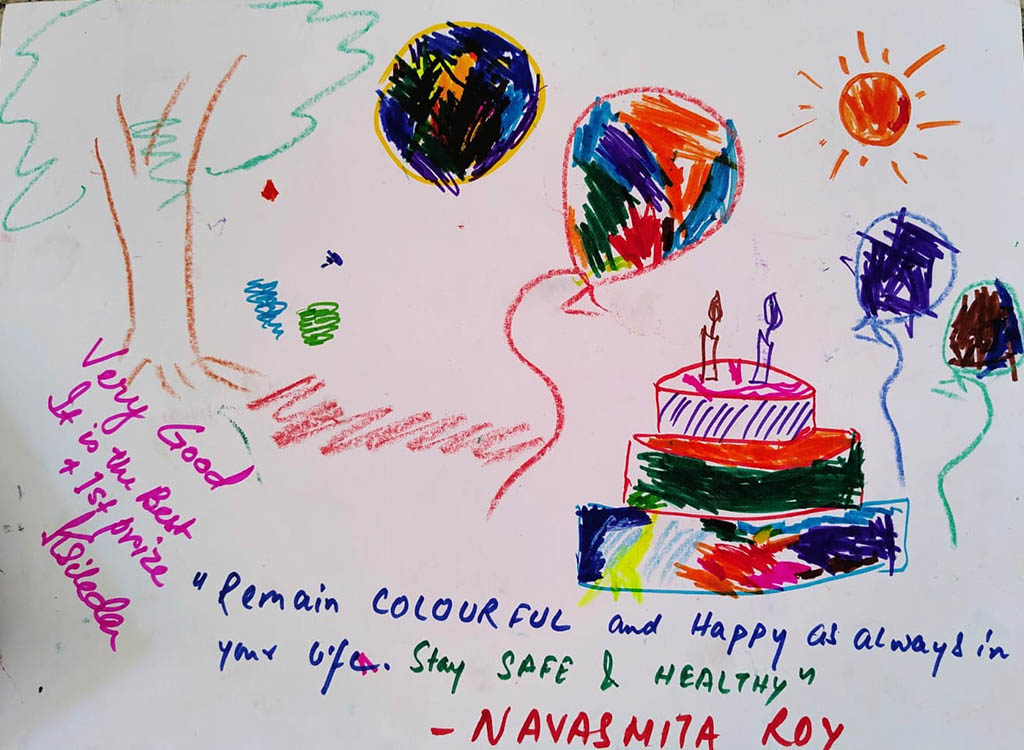 Very Good
It is the Best
+ 1st prize
"Remain COLOURFUL and Happy as always in
your life. Stay SAFE & HEALTHY"
- NAVASMITA ROY